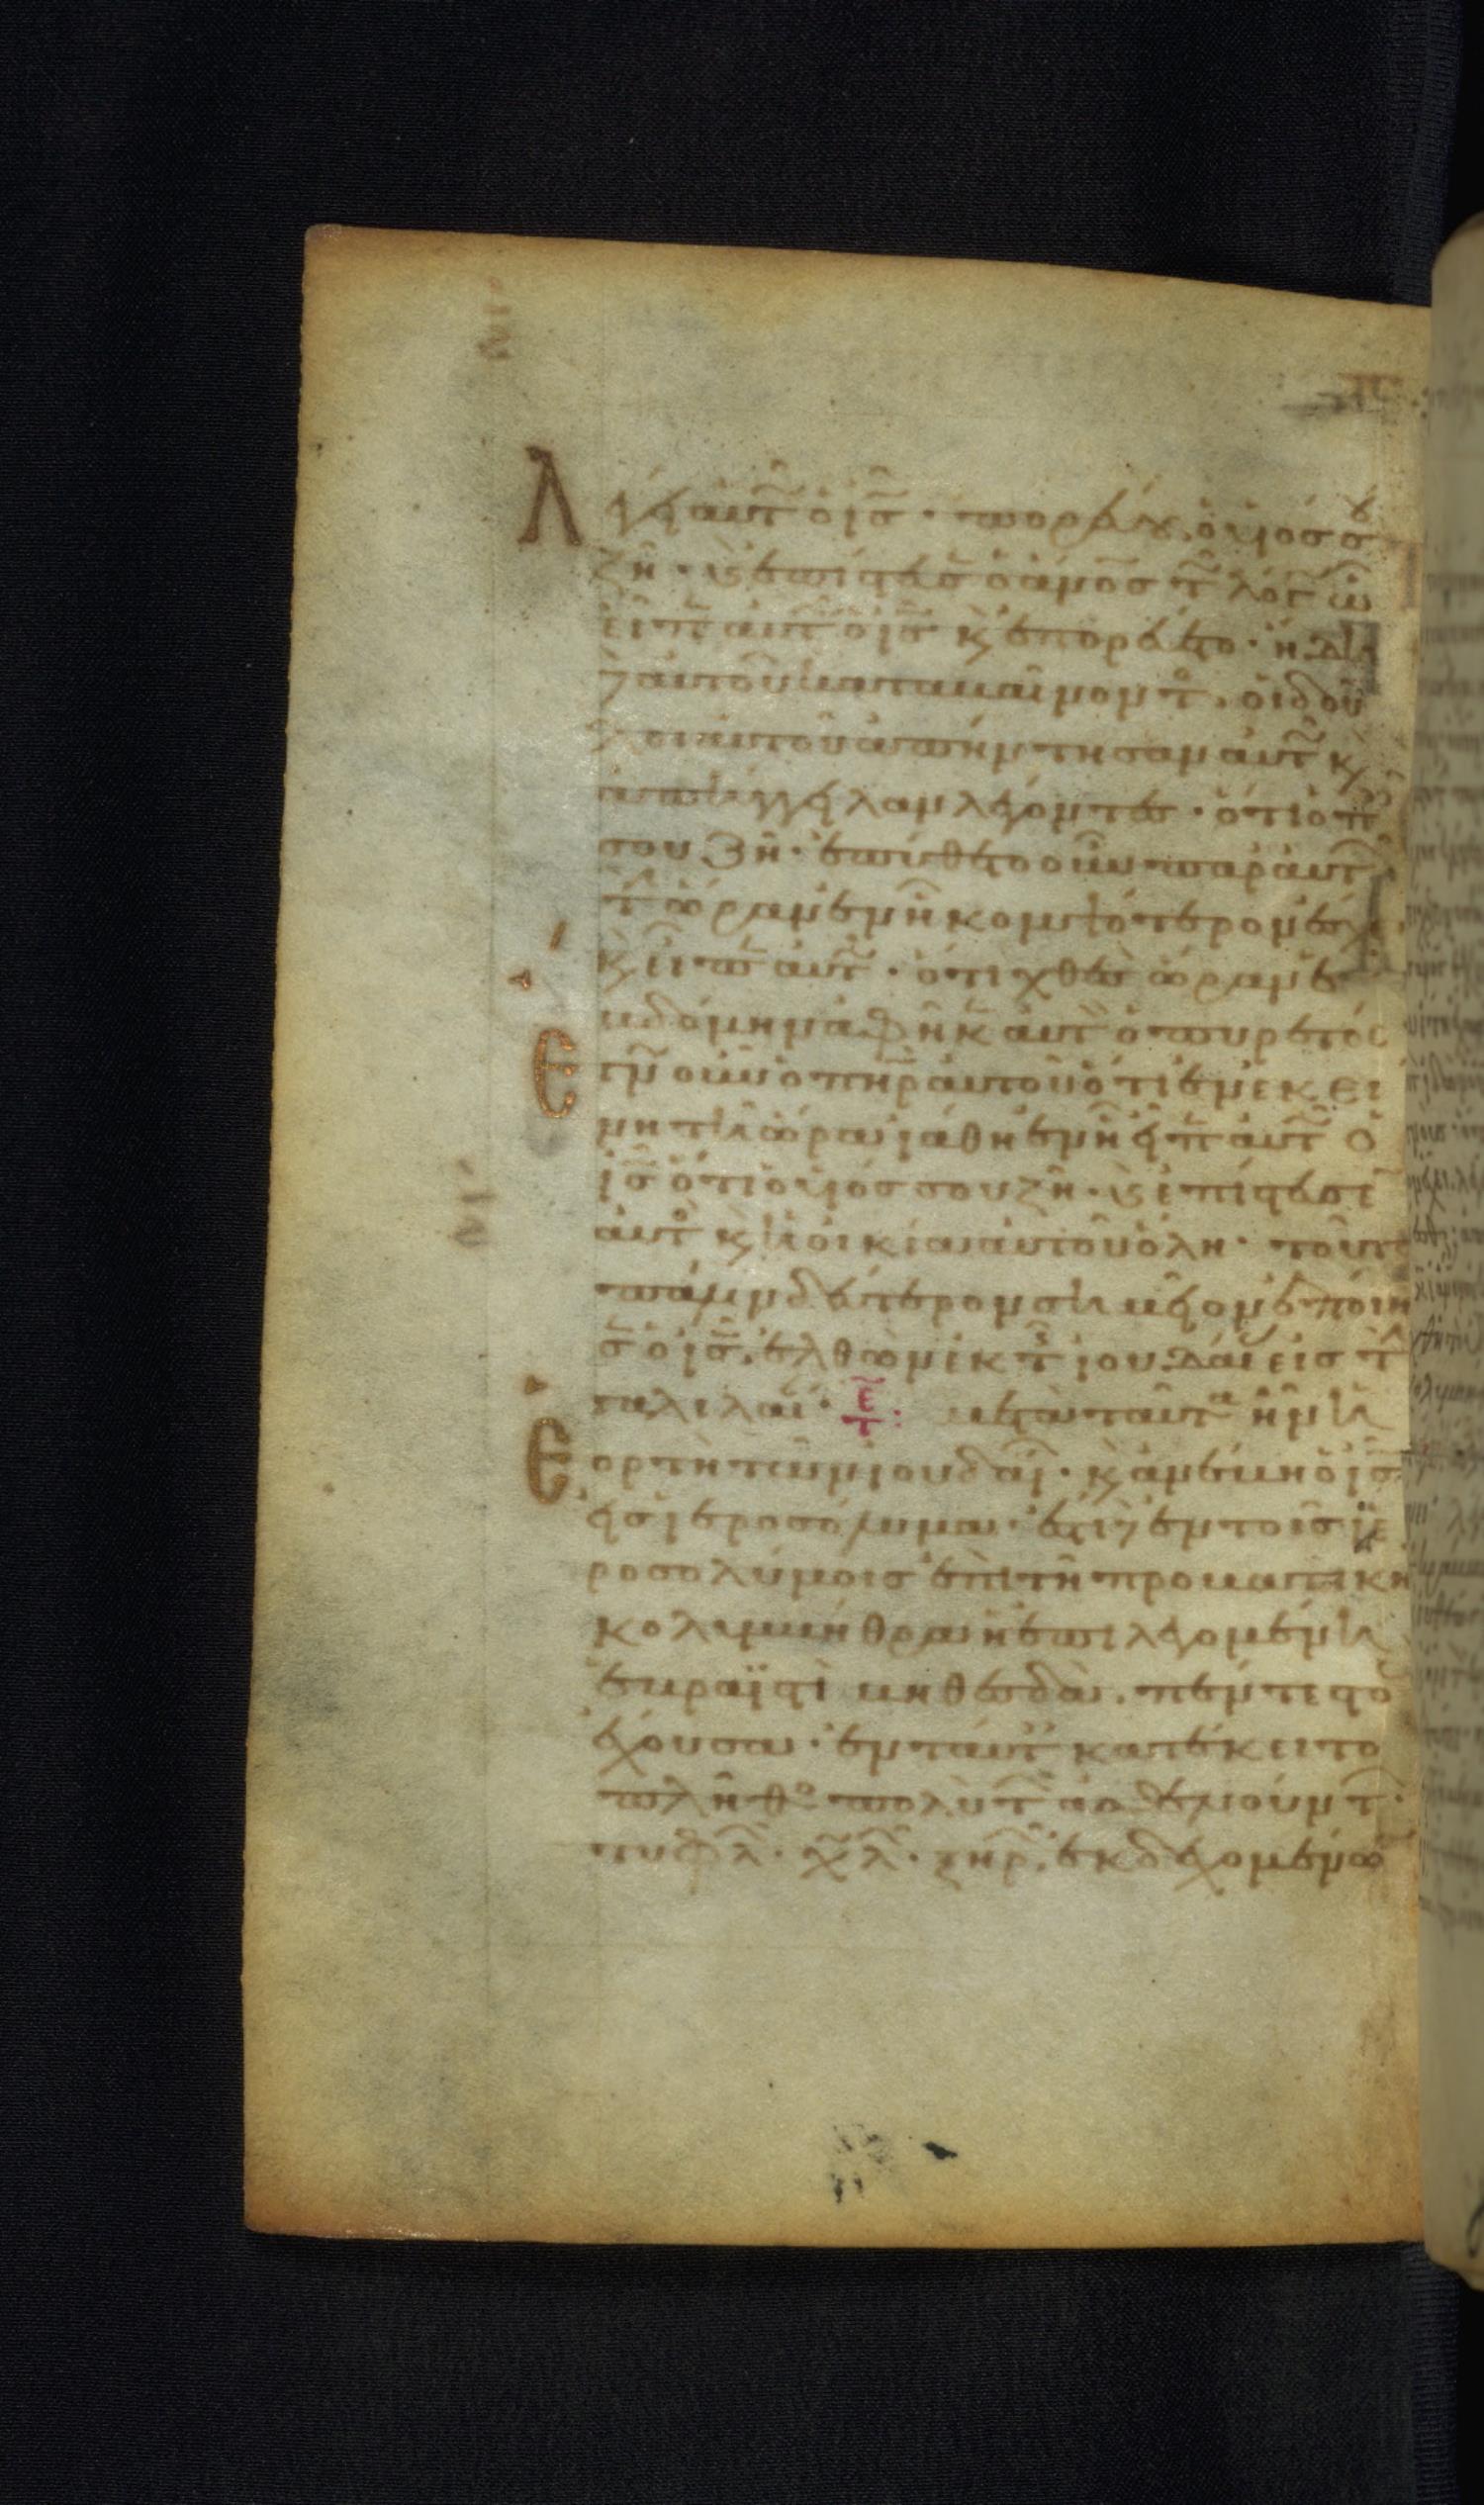 Λέγει αὐτῶ ὁ ις̅ · πορεύου, ὁ υἱός σου
ζῆ · καὶ ἐπίστευσεν ὁ ἄνος τῶ λόγω ὧ
εἶπεν αὐτῶ ὁ ις̅ κ ἐπορεύετο · ἤδη
δὲ αὐτοῦ καταβαίνοντος, οἱ δοῦ
λοι αὐτοῦ ἀπήντησαν αὐτῶ κ
ἀπήγγειλαν λέγοντες · ὅτι ὁ παῖς
σου ζῆ · ἐπύθετο οὖν παρ αὐτῶν
τὴν ὥραν ἐν ἧ κομψότερον ἔσχε
κ εἶπον αὐτῶ · ὅτι χθὲς ὥραν ἑ
βδόμην ἀφῆκεν αὐτὸν ὁ πυρετός
Ἔγνω οὖν ὁ πηρ αὐτοῦ ὅτι ἐν ἐκεί
νη τῆ ὥρα ἐν ἧ εἶπεν αὐτῶ ὁ
ις̅ ὅτι ὁ υἱός σου ζῆ · καὶ ἐπίστευσεν
αὐτὸς κ ἡ οἰκία αὐτοῦ ὅλη · τοῦτο
πάλιν δεύτερον σημεῖον ἐποίη
σεν ὁ ις̅, ἐλθὼν ἐκ τῆς ἰουδαίας εἰς τὴν
γαλιλαίαν · μετὰ ταῦτα ἦν ἡ
Ἑορτὴ τῶν ἰουδαίων · κ ἀνέβη ὁ ις̅
εἰς ἱεροσόλυμα · ἔστι δὲ ἐν τοῖς ἱε
ροσολύμοις ἐπὶ τῆ προβατικῆ
κολυμβήθρα ἡ ἐπιλεγομένη
ἑβραϊστὶ βηθεσδὰ, πέντε στο
ἔχουσα · ἐν ταύταις κατέκειτο
πλῆθος πολὺ τῶν ἀσθενούντων ·
τυφλῶν · χωλῶν · ξηρῶν, ἐκδεχομένων